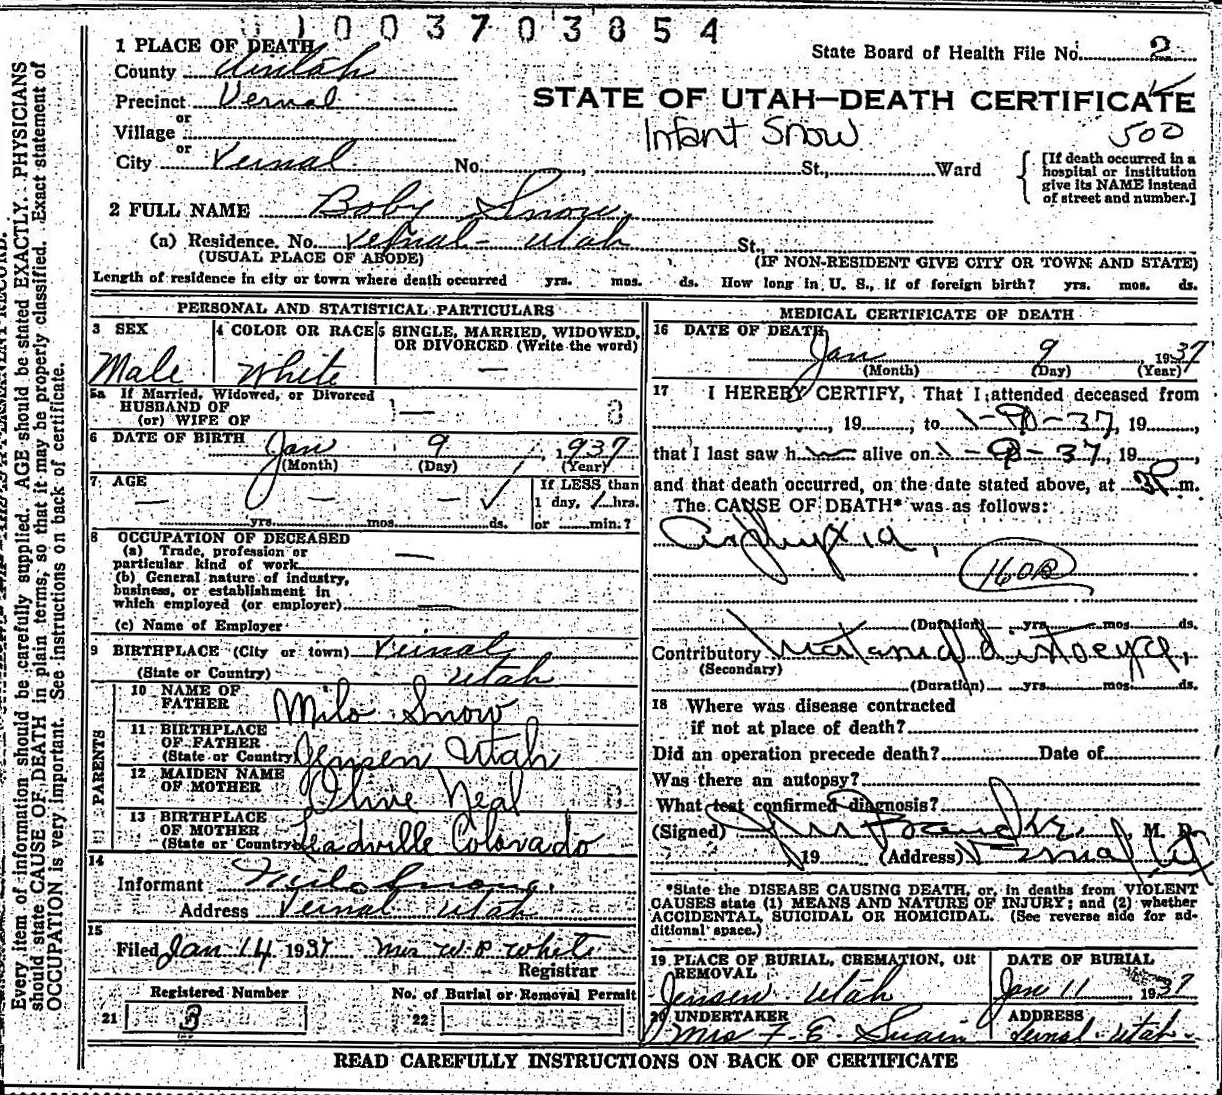 0 1 0 0 3 7 0 3 8 5 4
1 PLACE OF DEATH
State Board of Health File No. 2
County Uintah
Precinct Vernal
STATE OF UTAH—DEATH CERTIFICATE
or
Village
Infant Snow 500
or
City Vernal No. , St., Ward
[If death occurred in a
hospital or institution
give its NAME instead
of street and number.]
2 FULL NAME Baby Snow
(a) Residence. No. Vernal - Utah St.,
(USUAL PLACE OF ABODE) (IF NON-RESIDENT GIVE CITY OR TOWN AND STATE)
Length of residence in city or town where death occurred yrs. mos. ds. How long in U. S., if of foreign birth? yrs. mos. ds.
PERSONAL AND STATISTICAL PARTICULARS
3 SEX 4 COLOR OR RACE 5 SINGLE, MARRIED, WIDOWED,
OR DIVORCED (Write the word)
Male White —
5a If Married, Widowed, or Divorced
HUSBAND OF —
(or) WIFE OF
6 DATE OF BIRTH Jan 9, 1937
(Month) (Day) (Year)
7 AGE If LESS than
— — — 1 day, 1 hrs.
yrs. mos. ds. or min.?
8 OCCUPATION OF DECEASED
(a) Trade, profession or
particular kind of work —
(b) General nature of industry,
business, or establishment in
which employed (or employer) —
(c) Name of Employer
9 BIRTHPLACE (City or town) Vernal,
(State or Country) Utah
PARENTS
10 NAME OF
FATHER Milo Snow
11 BIRTHPLACE
OF FATHER
(State or Country) Jensen Utah
12 MAIDEN NAME
OF MOTHER Olive Neal
13 BIRTHPLACE
OF MOTHER
(State or Country) Leadville Colorado
14
Informant Milo Snow,
Address Vernal Utah
15
Filed Jan 14 1937 Mrs W. P. White
Registrar
Registered Number No. of Burial or Removal Permit
21 3 22
MEDICAL CERTIFICATE OF DEATH
16 DATE OF DEATH
Jan 9, 1937
(Month) (Day) (Year)
17 I HEREBY CERTIFY, That I attended deceased from
, 19 , to 1-9-37, 19 ,
that I last saw h alive on 1-9-37, 19 ,
and that death occurred, on the date stated above, at m.
The CAUSE OF DEATH* was as follows:
Asphyxia,
160B
(Duration) yrs. mos. ds.
Contributory
(Secondary)
(Duration) yrs. mos. ds.
18 Where was disease contracted
if not at place of death?
Did an operation precede death? Date of
Was there an autopsy?
What test confirmed diagnosis?
(Signed) , M. D.
19 (Address) Vernal Ut
*State the DISEASE CAUSING DEATH, or, in deaths from VIOLENT
CAUSES state (1) MEANS AND NATURE OF INJURY; and (2) whether
ACCIDENTAL, SUICIDAL OR HOMICIDAL. (See reverse side for ad-
ditional space.)
19 PLACE OF BURIAL, CREMATION, OR
REMOVAL
DATE OF BURIAL
Jensen Utah Jan 11, 1937
20 UNDERTAKER ADDRESS
Mrs F. E. Swain Vernal Utah
READ CAREFULLY INSTRUCTIONS ON BACK OF CERTIFICATE
Every item of information should be carefully supplied. AGE should be stated EXACTLY. PHYSICIANS
should state CAUSE OF DEATH in plain terms, so that it may be properly classified. Exact statement of
OCCUPATION is very important. See instructions on back of certificate.